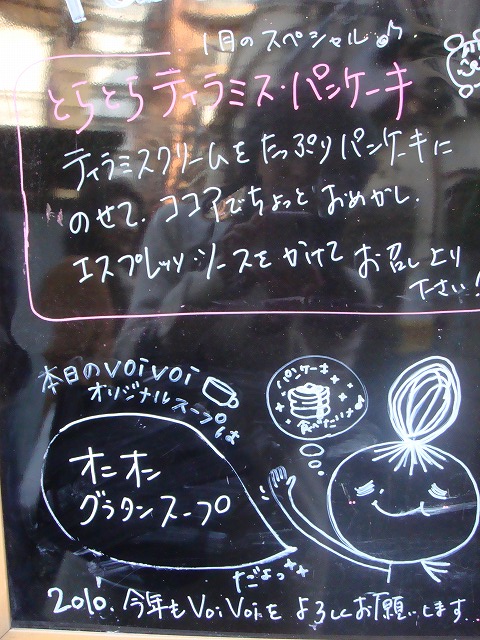 1月のスペシャル
とらとらティラミス・パンケーキ
ティラミスクリームをたっぷりパンケーキに
のせて、ココアでちょっとおめかし.
エスプレッソ・ソースをかけてお召し上り
下さい!
本日のvoivoi
オリジナルスープは
パンケーキ
食べたいな
オニオン
グラタンスープ
だよっ××
2010. 今年もVoiVoiをよろしくお願いします...